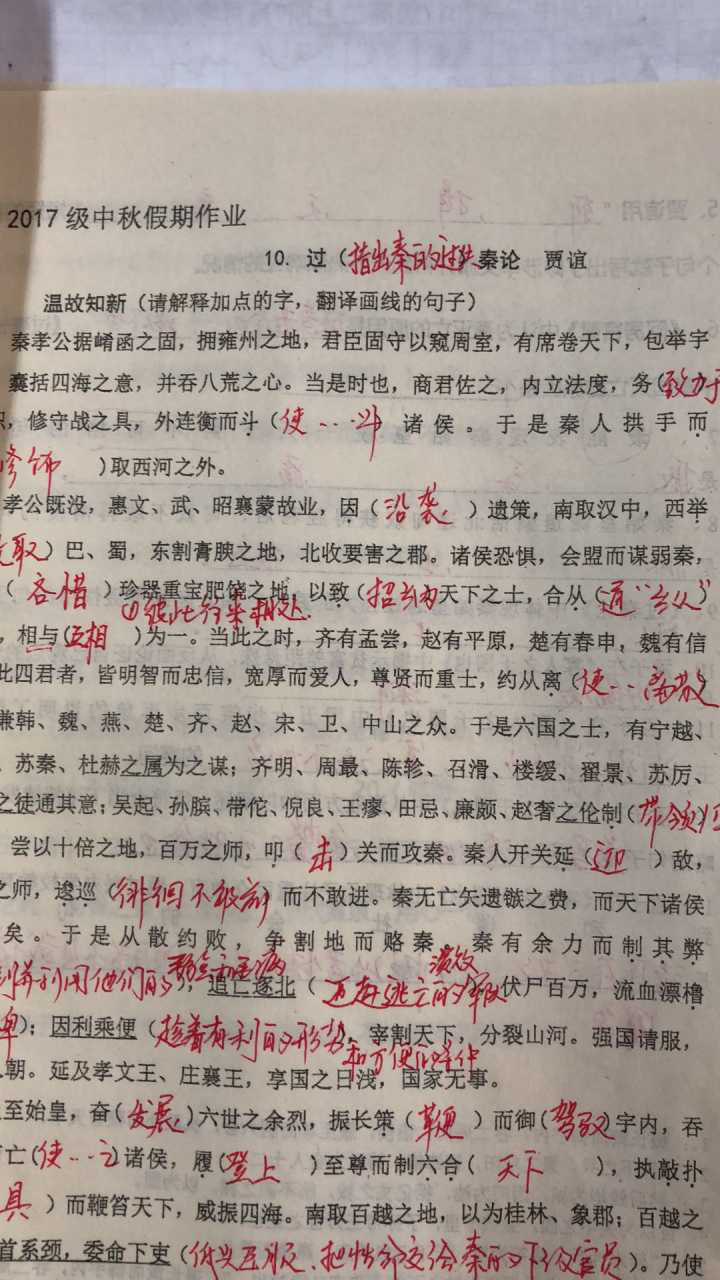 2017 级中秋假期作业
10. 过（指出秦的过失秦论 贾谊
温故知新（请解释加点的字，翻译画线的句子）
秦孝公据崤函之固，拥雍州之地，君臣固守以窥周室，有席卷天下，包举宇
囊括四海之意，并吞八荒之心。当是时也，商君佐之，内立法度，务（致力于
织，修守战之具，外连衡而斗（使…斗）诸侯。于是秦人拱手而
修饰 ）取西河之外。
孝公既没，惠文、武、昭襄蒙故业，因（沿袭）遗策，南取汉中，西举
攻取）巴、蜀，东割膏腴之地，北收要害之郡。诸侯恐惧，会盟而谋弱秦，
（吝惜）珍器重宝肥饶之地，以致（招纳天下之士，合从（通“纵”）
①彼此
，相与（互相）为一。当此之时，齐有孟尝，赵有平原，楚有春申，魏有信
此四君者，皆明智而忠信，宽厚而爱人，尊贤而重士，约从离（使…离散
兼韩、魏、燕、楚、齐、赵、宋、卫、中山之众。于是六国之士，有宁越、
、苏秦、杜赫之属为之谋；齐明、周最、陈轸、召滑、楼缓、翟景、苏厉、
之徒通其意；吴起、孙膑、带佗、倪良、王廖、田忌、廉颇、赵奢之伦制（带领
尝以十倍之地，百万之师，叩（击）关而攻秦。秦人开关延（迎）敌，
之师，逡巡（徘徊不敢前）而不敢进。秦无亡矢遗镞之费，而天下诸侯
矣。于是从散约败，争割地而赂秦。秦有余力而制其弊
利用他们的 ，追亡逐北（ 逃亡的溃败 ），伏尸百万，流血漂橹
）；因利乘便（趁着有利的形势 ，宰割天下，分裂山河。强国请服，
和方便的条件
入朝。延及孝文王、庄襄王，享国之日浅，国家无事。
至始皇，奋（发展）六世之余烈，振长策（鞭）而御（驾驭）宇内，吞
亡（使…亡）诸侯，履（登上）至尊而制六合（天下），执敲扑
具）而鞭笞天下，威振四海。南取百越之地，以为桂林、象郡；百越之
首系颈，委命下吏（ 把性命交给秦的下级官员）。乃使